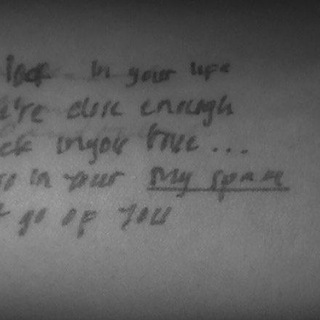 look in your life
're close enough
in your
in your my space
go of you